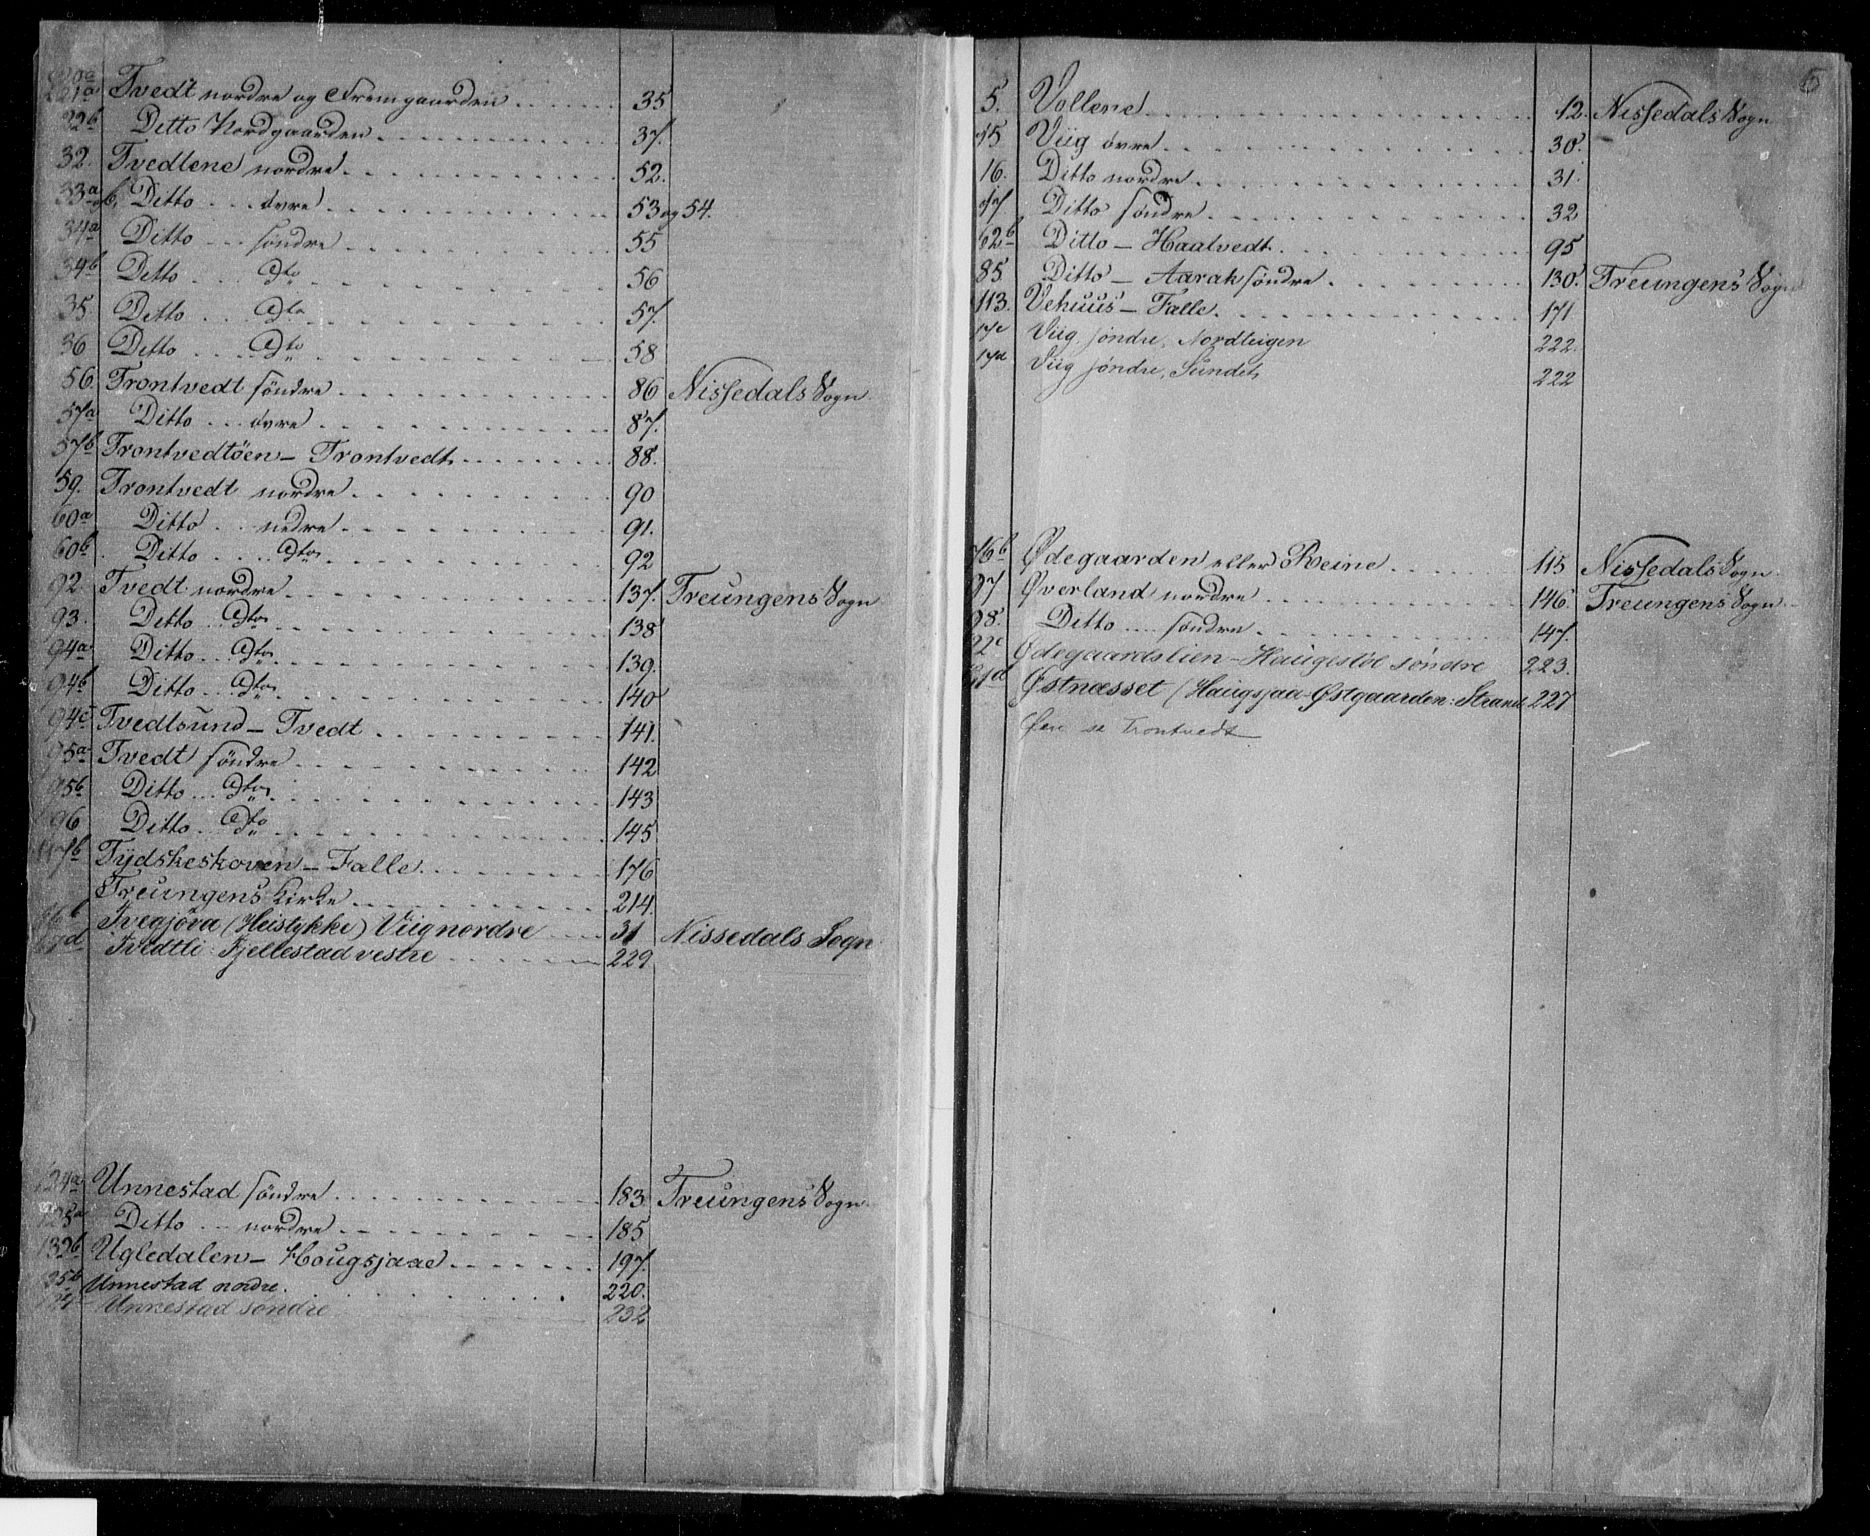 21a Tvedt nordre og Fremgaarden 35
22b Ditto Nordgaarden 37.
32. Tvedtene nordre 52.
33a og b. Ditto øvre 53 og 54.
34a Ditto søndre 55
34b Ditto Dto 56
35 Ditto Dto 57.
36 Ditto Dto 58
56. Trontvedt søndre 86 Nissedals Sogn.
57a Ditto øvre 87.
57b Trontvedtöen – Trontvedt 88.
59. Trontvedt nordre 90
60a Ditto nedre 91.
60b. Ditto Dto 92
92 Tvedt nordre 137. Treungens Sogn
93. Ditto Dto 138
94a Ditto Dto 139.
94b Ditto Dto 140
94c Tvedtsund – Tvedt 141.
95a Tvedt søndre 142
95b Ditto Dto 143
96 Ditto Dto 145
117b Tydskeskoven – Falle 176
Treungens Kirke 214.
16b Tvegjöva (Heistykke) Viig nordre 31 Nissedals Sogn
67d Tvedtli : Fjellestad vestre 229
124a Unnestad søndre 183 Treungens Sogn.
125a Ditto nordre 185
132b Ugledalen – Hougsjaae 197.
125b Unnestad nordre. 220.
Unnestad søndre 232
5
5. Vollene 12. Nissedals Sogn
15 Viig øvre 30.
16. Ditto nordre 31.
17 Ditto søndre 32
62b Ditto – Haatvedt 95
85 Ditto – Aarak søndre 130. Treungens Sogn
113. Vehuus – Falle 171
17c Viig søndre, Nordteigen 222.
17d Viig søndre, Sundet 222
76b Ødegaarden eller Reine 115 Nissedals Sogn.
97 Øverland nordre 146. Treungens Sogn.
98. Ditto søndre 147.
22c Ødegaardslien – Haugestöl søndre 223.
Østnæsset (Haugsjaa-Østgaarden: Strand 227
Øen se Trontvedt